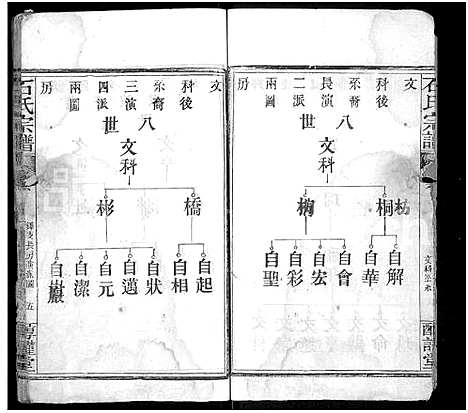 石氏宗譜
文
科後
系裔
長演
二派
兩圖
房
八世
文科
桐
自解
自華
自會
自宏
自彩
自聖
石氏宗譜
文
科後
系裔
三演
四派
兩圖
房
八世
文科
橋
彬
自起
自相
自狀
自邁
自元
自潔
自巖
五